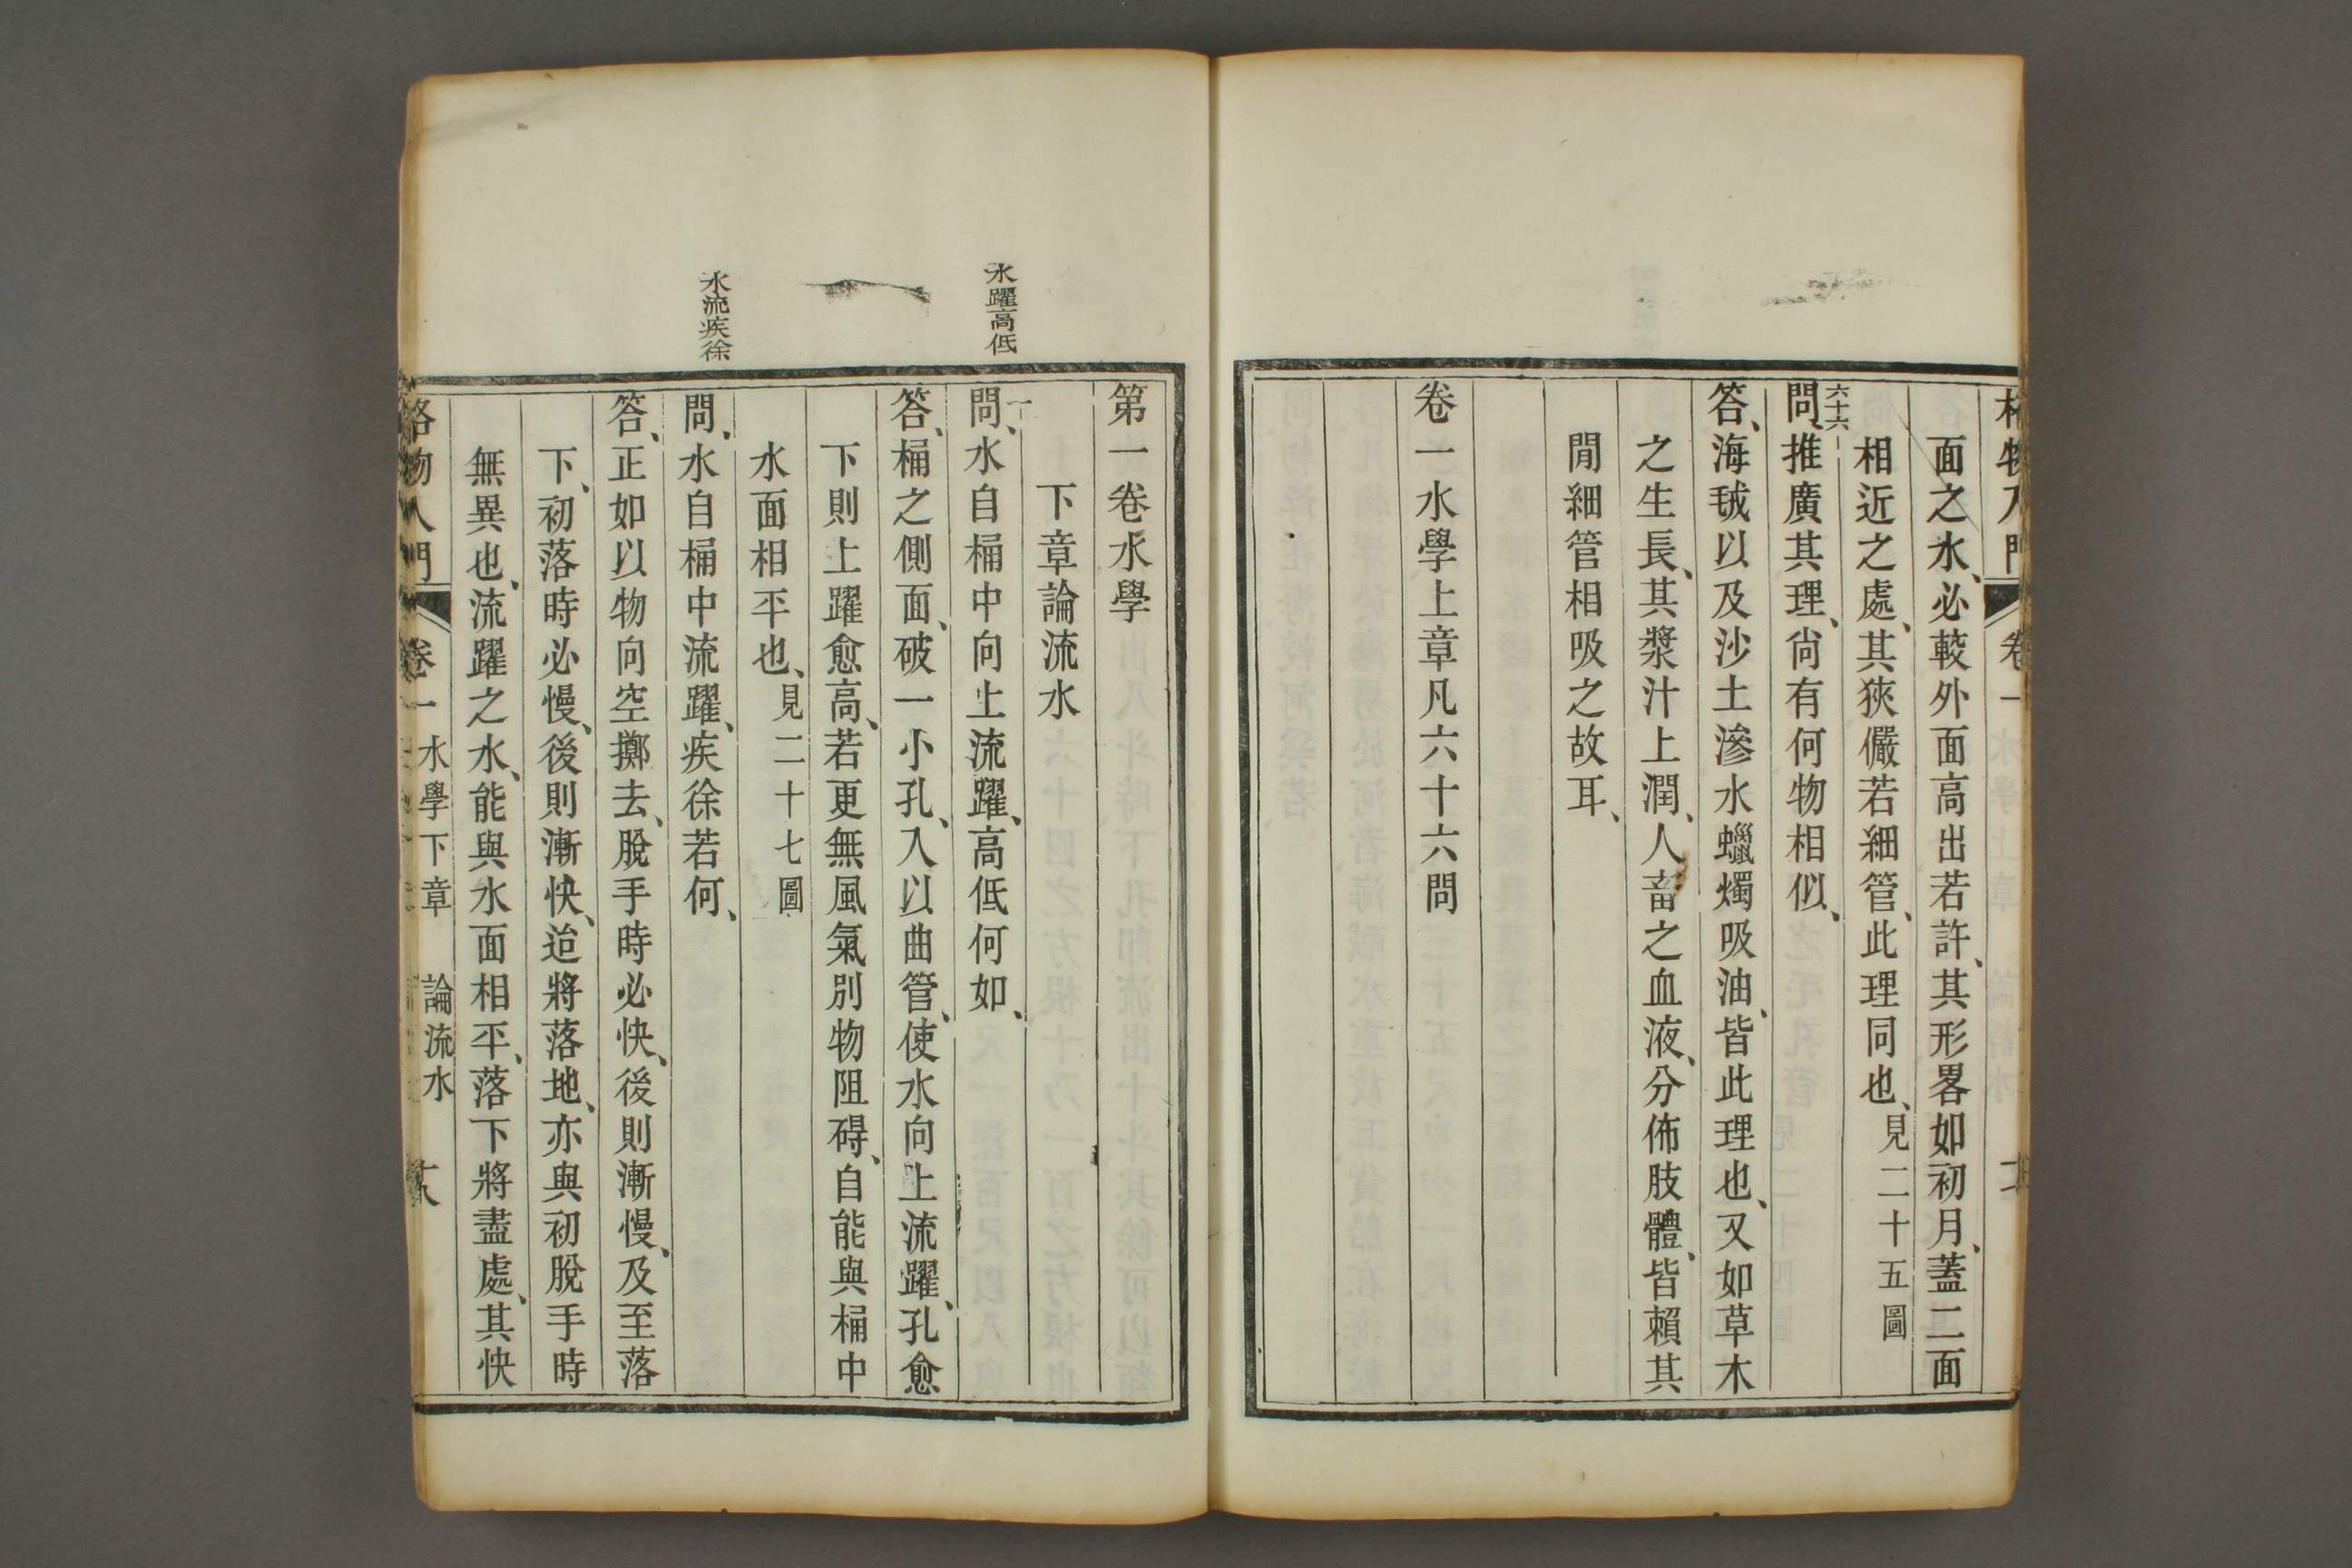 格物入門 卷一
面之水、必較外面高出若許、其形畧如初月、蓋二面
相近之處、其狹儼若細管、此理同也、見二十五圖
六十六
問、推廣其理、尙有何物相似、
答、海毧以及沙土滲水蠟燭吸油、皆此理也、又如草木
之生長、其漿汁上潤、人畜之血液、分佈肢體、皆賴其
閒細管相吸之故耳、
卷一水學上章凡六十六問
第一卷水學
下章論流水
水躍高低
一
問、水自桶中向上流躍、高低何如、
答、桶之側面、破一小孔、入以曲管、使水向上流躍、孔愈
下則上躍愈高、若更無風氣別物阻碍、自能與桶中
水面相平也、見二十七圖
水流疾徐
問、水自桶中流躍、疾徐若何、
答、正如以物向空擲去、脫手時必快、後則漸慢、及至落
下、初落時必慢、後則漸快、迨將落地、亦與初脫手時
無異也、流躍之水、能與水面相平、落下將盡處、其快
格物入門 卷一 水學下章 論流水 十八